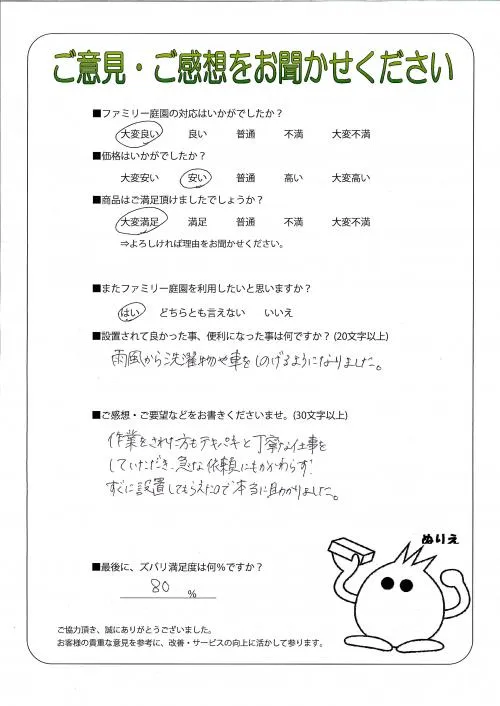 ご意見・ご感想をお聞かせください
■ファミリー庭園の対応はいかがでしたか？
大変良い　良い　普通　不満　大変不満
■価格はいかがでしたか？
大変安い　安い　普通　高い　大変高い
■商品はご満足頂けましたでしょうか？
大変満足　満足　普通　不満　大変不満
⇒よろしければ理由をお聞かせください。
■またファミリー庭園を利用したいと思いますか？
はい　どちらとも言えない　いいえ
■設置されて良かった事、便利になった事は何ですか？(20文字以上)
雨風から洗濯物や車をしのげるようになりました。
■ご感想・ご要望などをお書きくださいませ。(30文字以上)
作業をされた方もテキパキと丁寧な仕事を
していただき、急な依頼にもかかわらず
すぐに設置してもらえたので本当に助かりました。
ぬりえ
■最後に、ズバリ満足度は何％ですか？
80 %
ご協力頂き、誠にありがとうございました。
お客様の貴重な意見を参考に、改善・サービスの向上に活かして参ります。